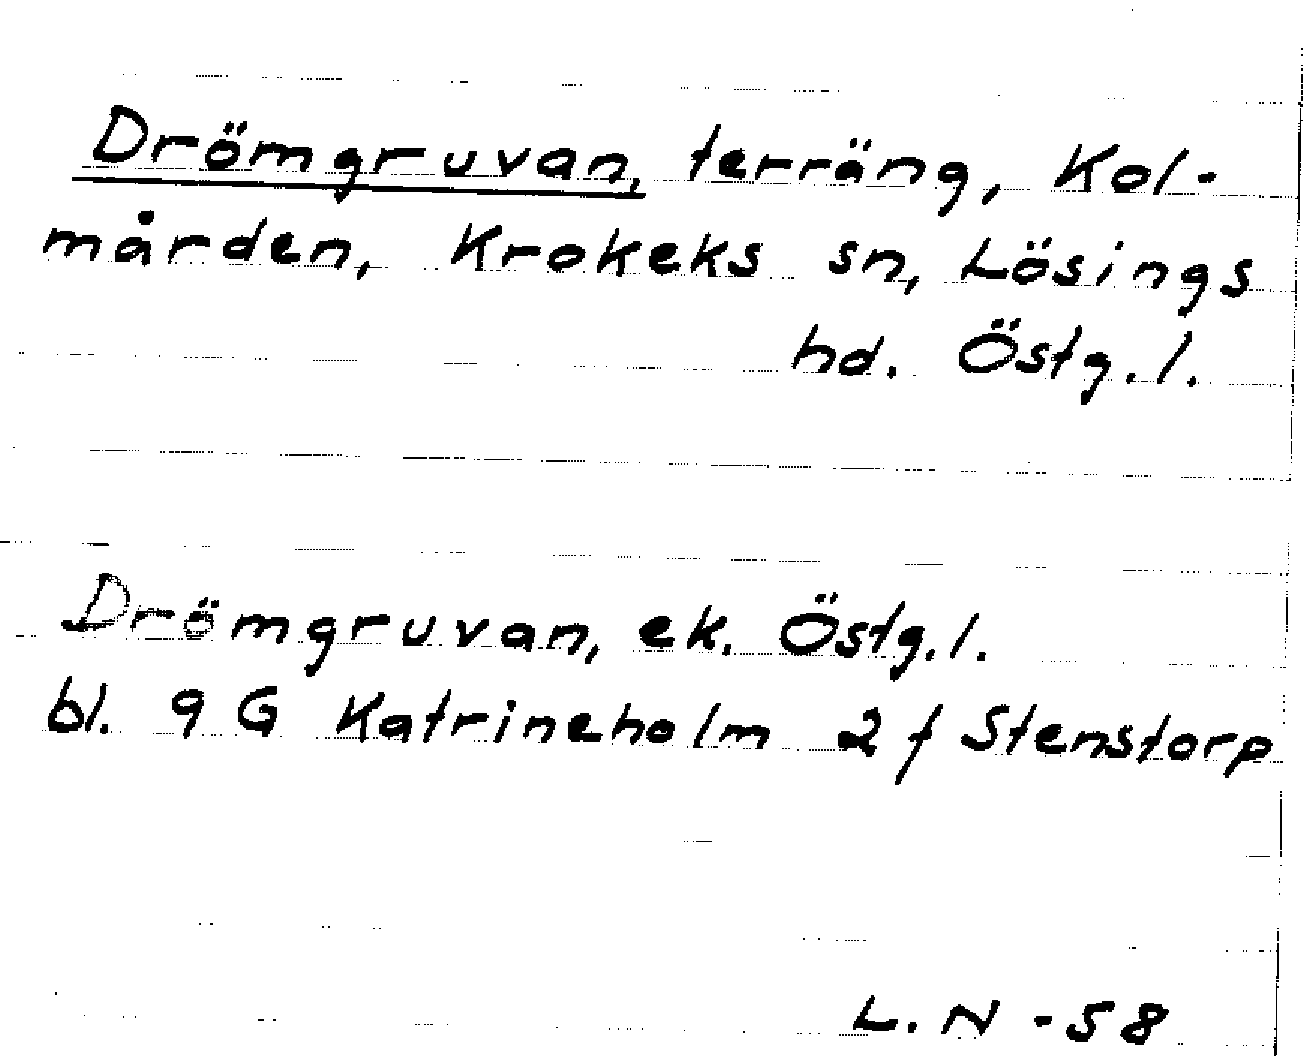 Drömgruvan, terräng, Kol-
mården, Krokeks sn, Lösings
hd. Östg.l.
Drömgruvan, ek. Östg.l.
bl. 9 G Katrineholm 2 f Stenstorp
L. N -58